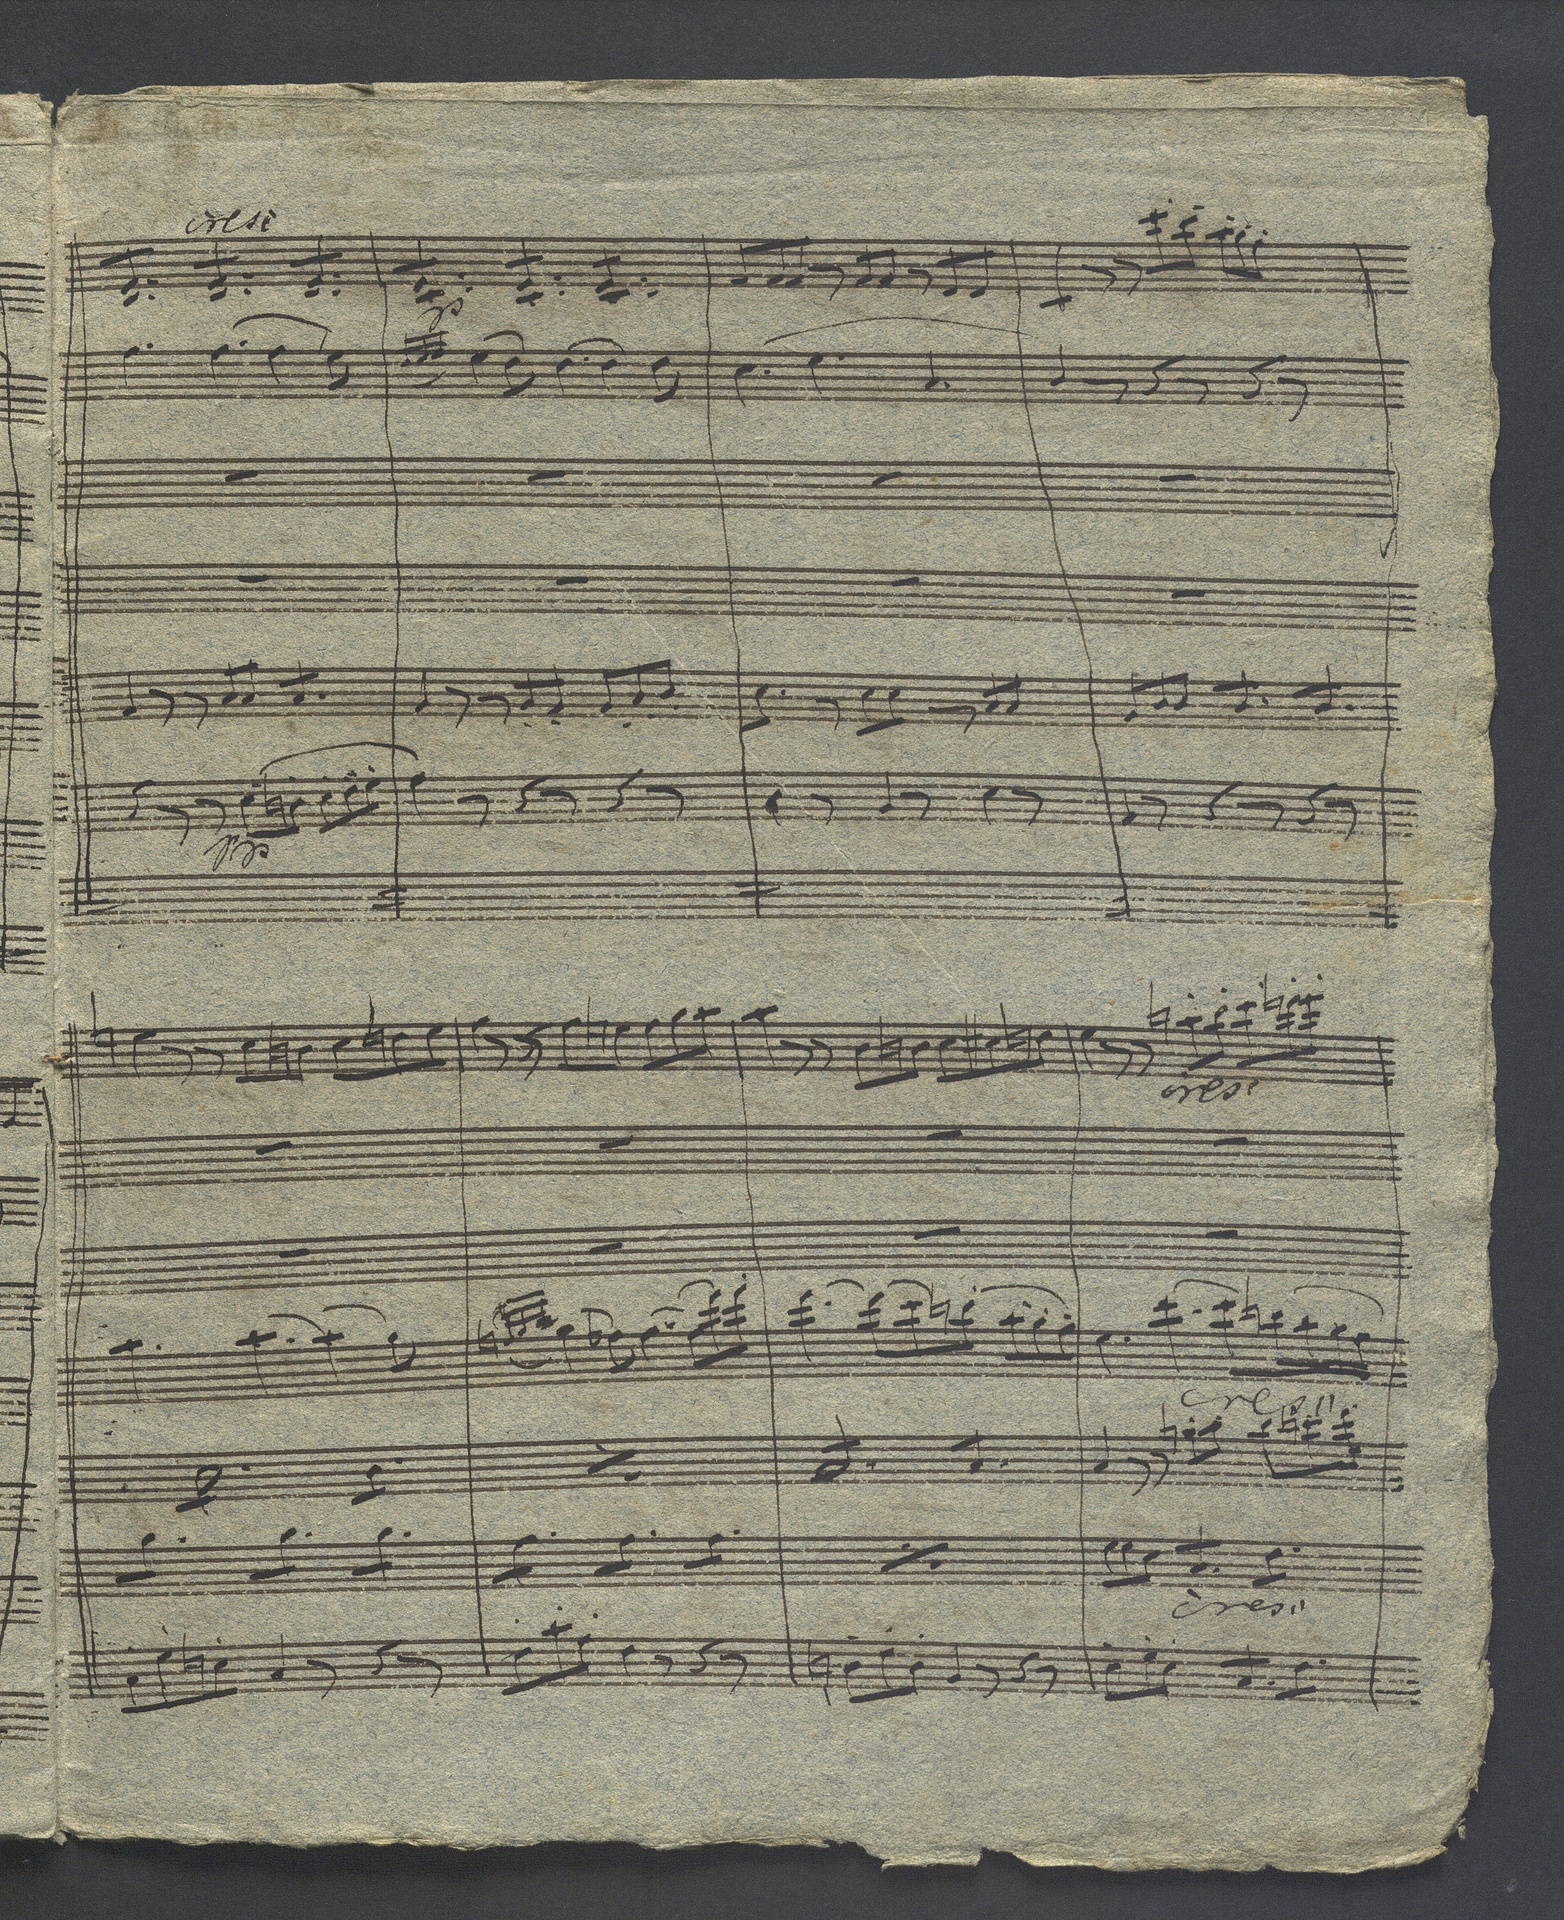 cresc
p
pp
cresc
cresc
cresc